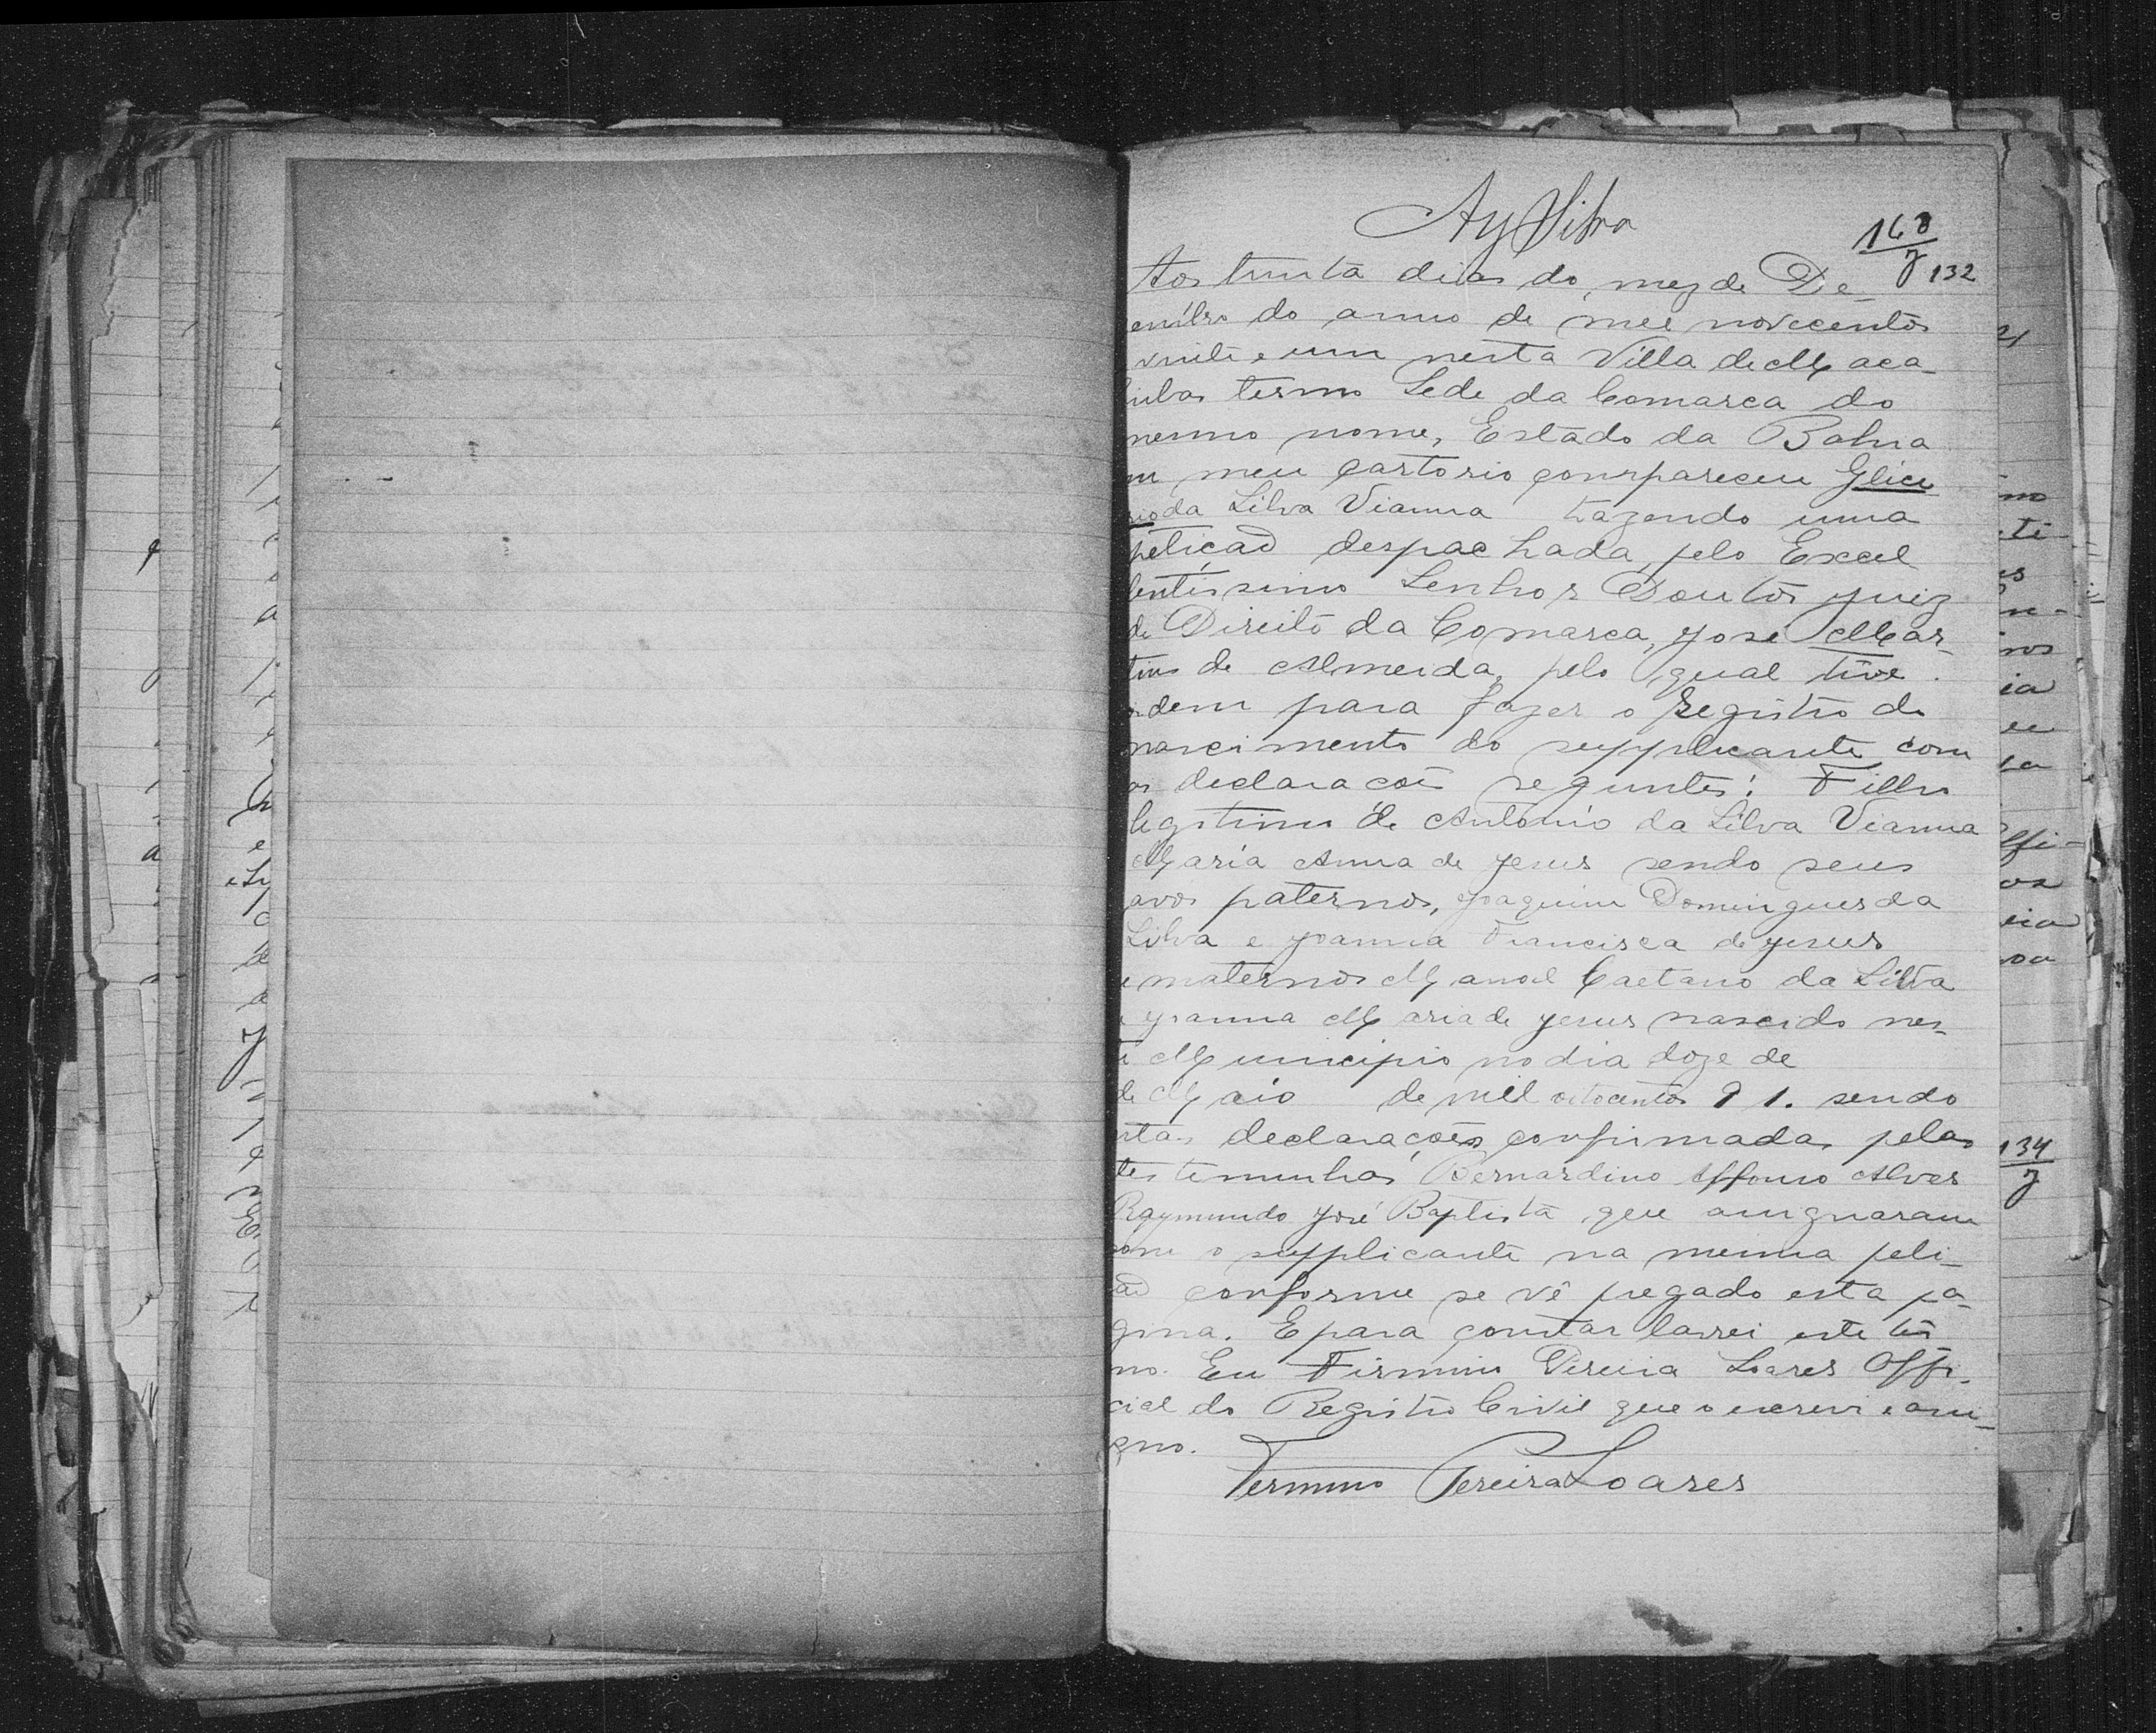 Ay Silva
163
7 132
Aos trinta dias do mez de De-
embro do anno de mil novecentos
vinte e um nesta Villa de Maca-
ubas termo Sede da Comarca do
mesmo nome, Estado da Bahia
m meu cartorio compareceu Glice
rio da Silva Vianna trazendo uma
petição despachada pelo Excel
lentissimo Senhor Doutor Juiz
de Direito da Comarca, José Mar-
tins de Almeida, pelo qual tive
rdem para fazer o Registro de
nascimento do supplicante com
as declaracões seguntes: Filho
legitimo de Antonio da Silva Vianna
Maria Anna de Jesus sendo seus
avós paternos, Joaquim Domingues da
Silva e Joanna Francisca de Jesus
e maternos Manoel Caetano da Silva
e Joanna Maria de Jesus nascido nes-
te Municipio no dia doze de
de Maio de mil oitocentos 91. sendo
estas declarações confirmadas pelas
testemunhas Bernardino Affonso Alves
Raymundo José Baptista que assignaram
com o supplicante na mesma peti-
ão conforme se vê pregado esta pa-
gina. E para constar lavrei este ter
mo. Eu Firmino Pereira Soares Offi-
cial do Registro Civil que o escrevi e assi-
gno.
Fermino Pereira Soares
134
7